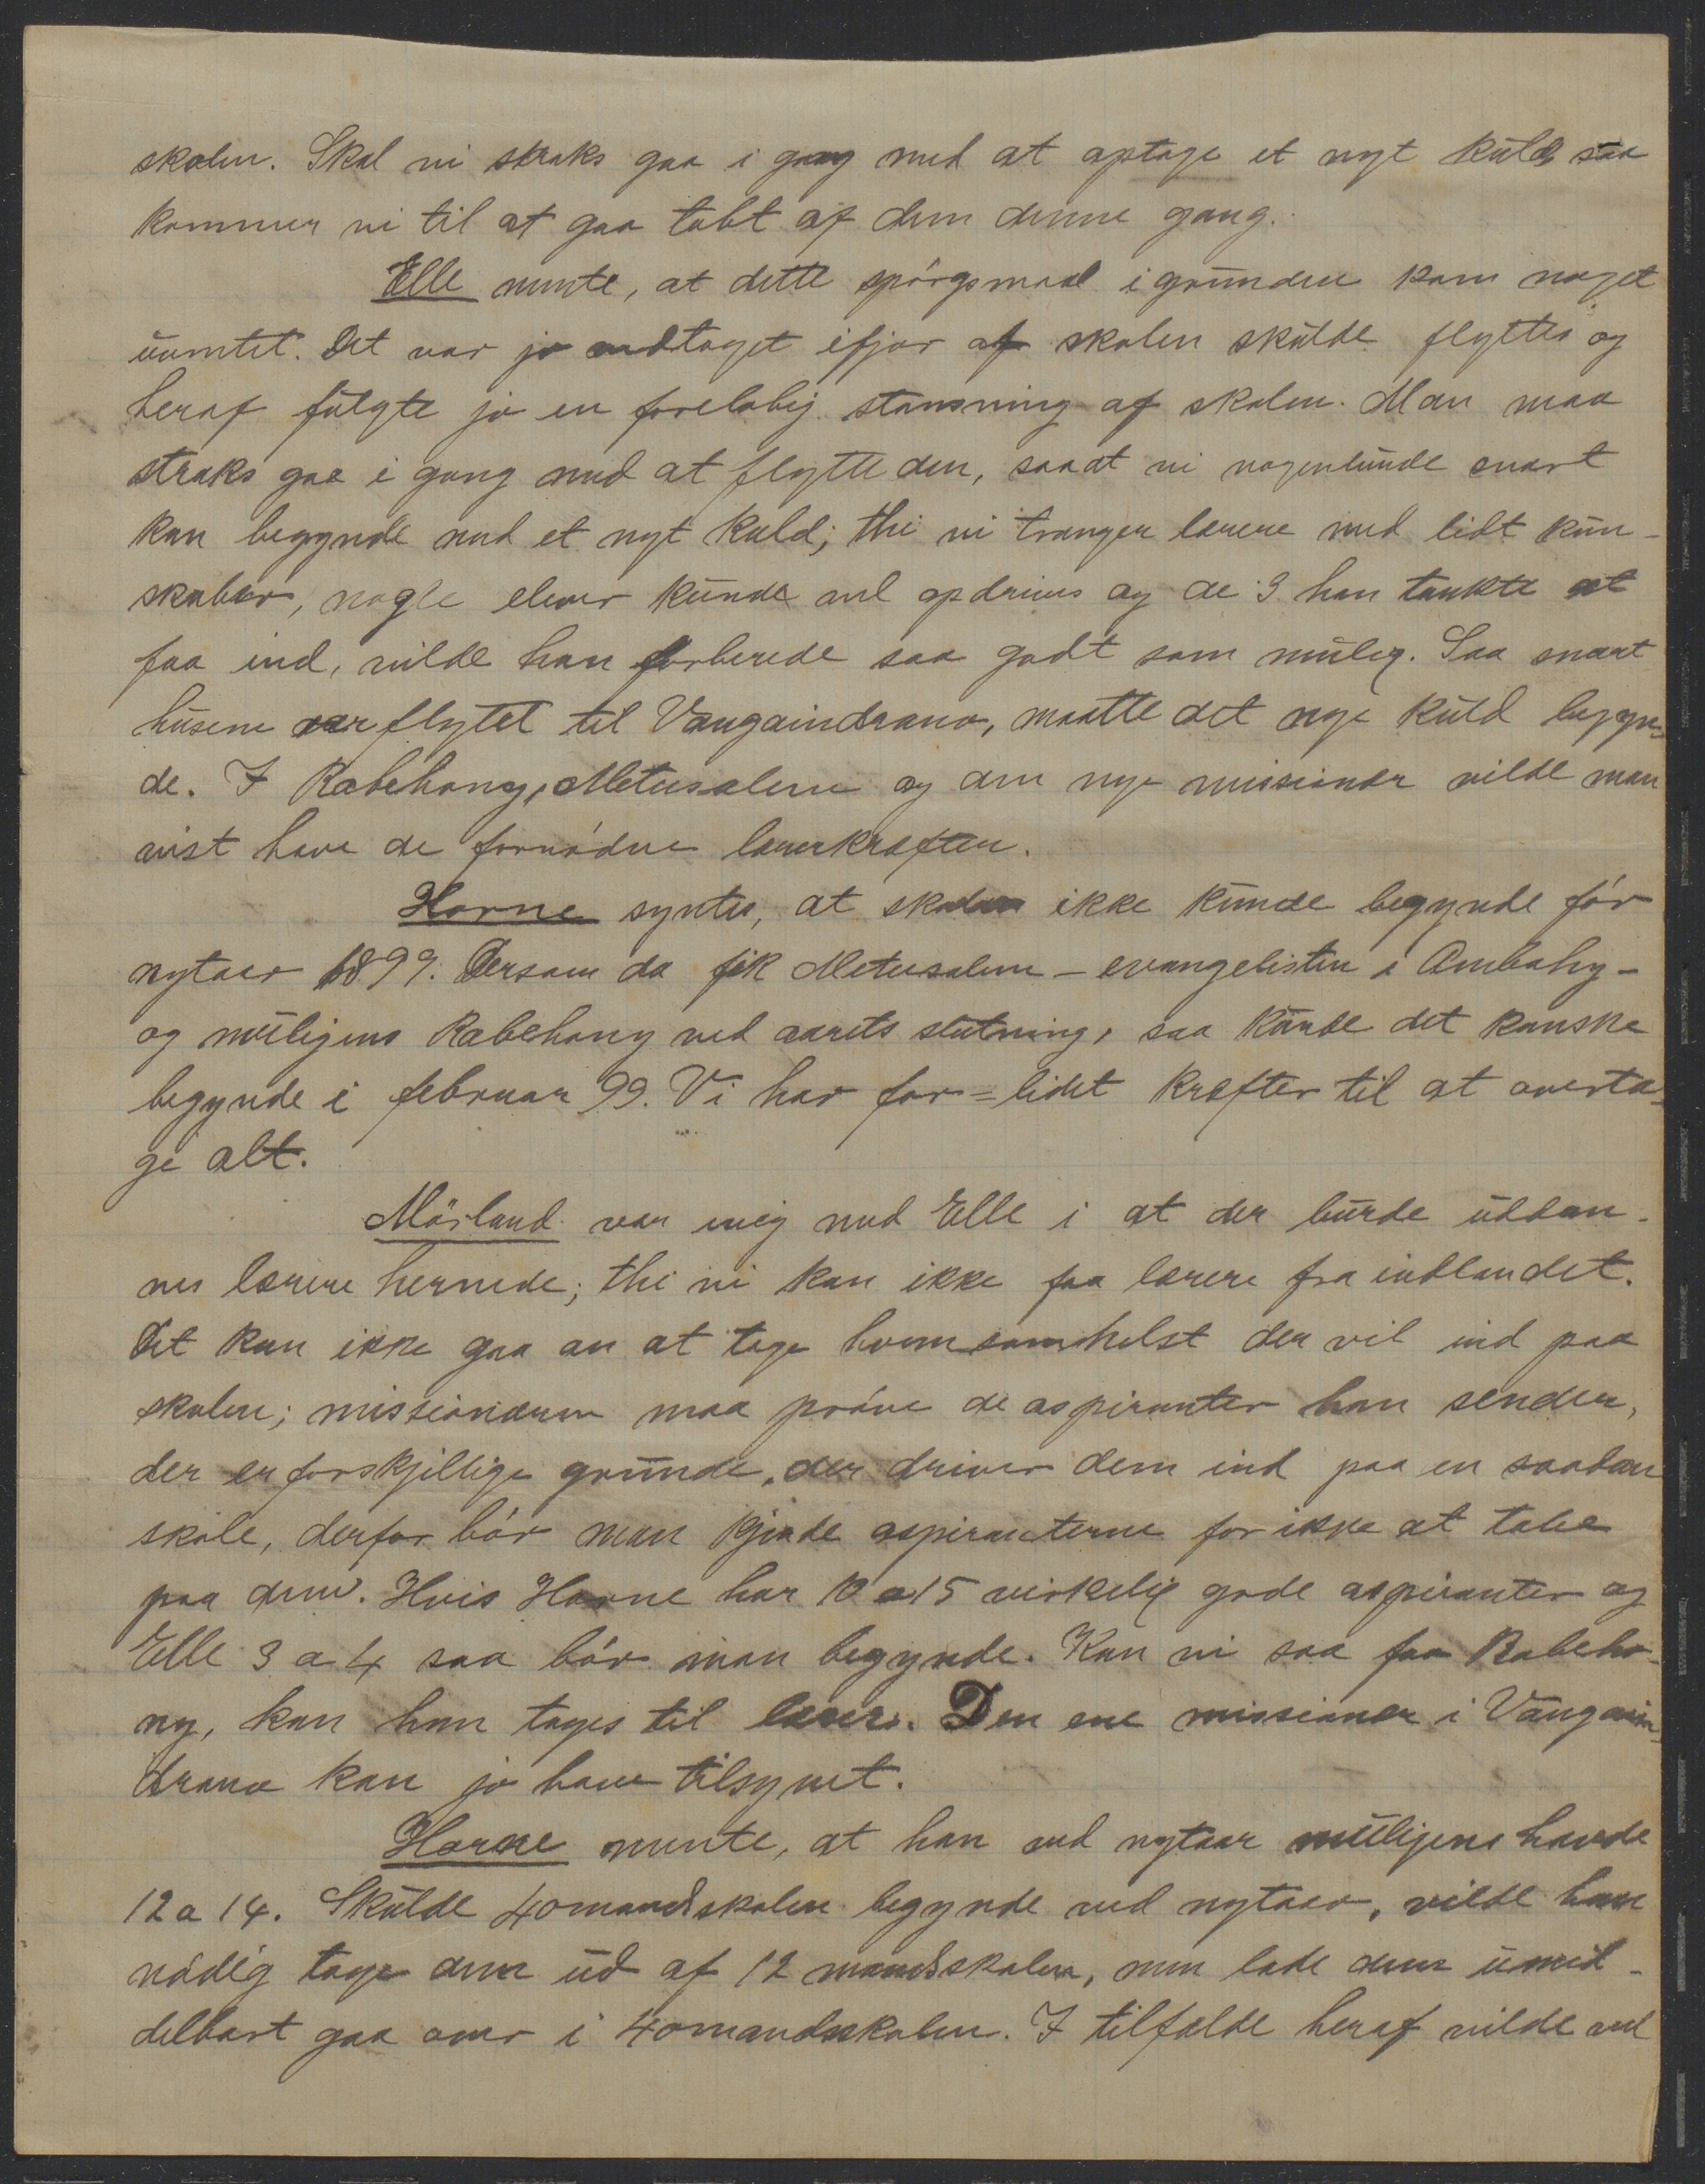 skolen. Skal vi straks gaa i gang med at optage et nyt kuld, saa
kommer vi til at gaa tabt af dem denne gang.
Elle mente, at dette spörgsmaal i grunden kom noget
uventet. Det var jo vedtaget ifjor at skolen skulde flyttes og
heraf fulgte jo en forelöbig stansning af skolen. Man maa
straks gaa i gang med at flytte den, saa at vi nogenlunde snart
kan begynde med et nyt kuld; thi vi trænger lærere med lidt kun-
skaber, nogle elever kunde vel opdrives og de 3 han tænkte at
faa ind, vilde han forberede saa godt som mulig. Saa snart
husene var flyttet til Vangaindrano, maatte det nye kuld begyn-
de. I Rabehony, Metusalem og den nye missionær vilde man
vist have de fornödne lærerkræfter.
Horne syntes, at skolen ikke kunde begynde för
nytaar 1899. Dersom da fik Metusalem - evangelisten i Ambahy -
og muligens Rabehony ved aarets slutning, saa kunde det kanske
begynde i februar 99. Vi har for lidet kræfter til at overta-
ge alt.
Mörland var enig med Elle i at der burde uddan-
nes lærere hernede; thi vi kan ikke faa lærere fra indlandet.
Det kan ikke gaa an at tage hvemsomhelst der vil ind paa
skolen; missionæren maa pröve de aspiranter han sender,
der er forskjellige grunde, der driver dem ind paa en saadan
skole, derfor bör man kjende aspiranterne for ikke at tabe
paa dem. Hvis Horne har 10 a 15 virkelig gode aspiranter og
Elle 3 a 4 saa bör man begynde. Kan vi saa faa Rabeho-
ny, kan han tages til lærer. Den ene missionær i Vangain-
drano kan jo have tilsynet.
Horne mente, at han ved nytaar muligens havde
12 a 14. Skulde 40mandsskolen begynde ved nytaar, vilde han
nödig tage dem ud af 12 mandsskolen, men lade dem umid-
delbart gaa over i 40mandsskolen. I tilfælde heraf vilde vel